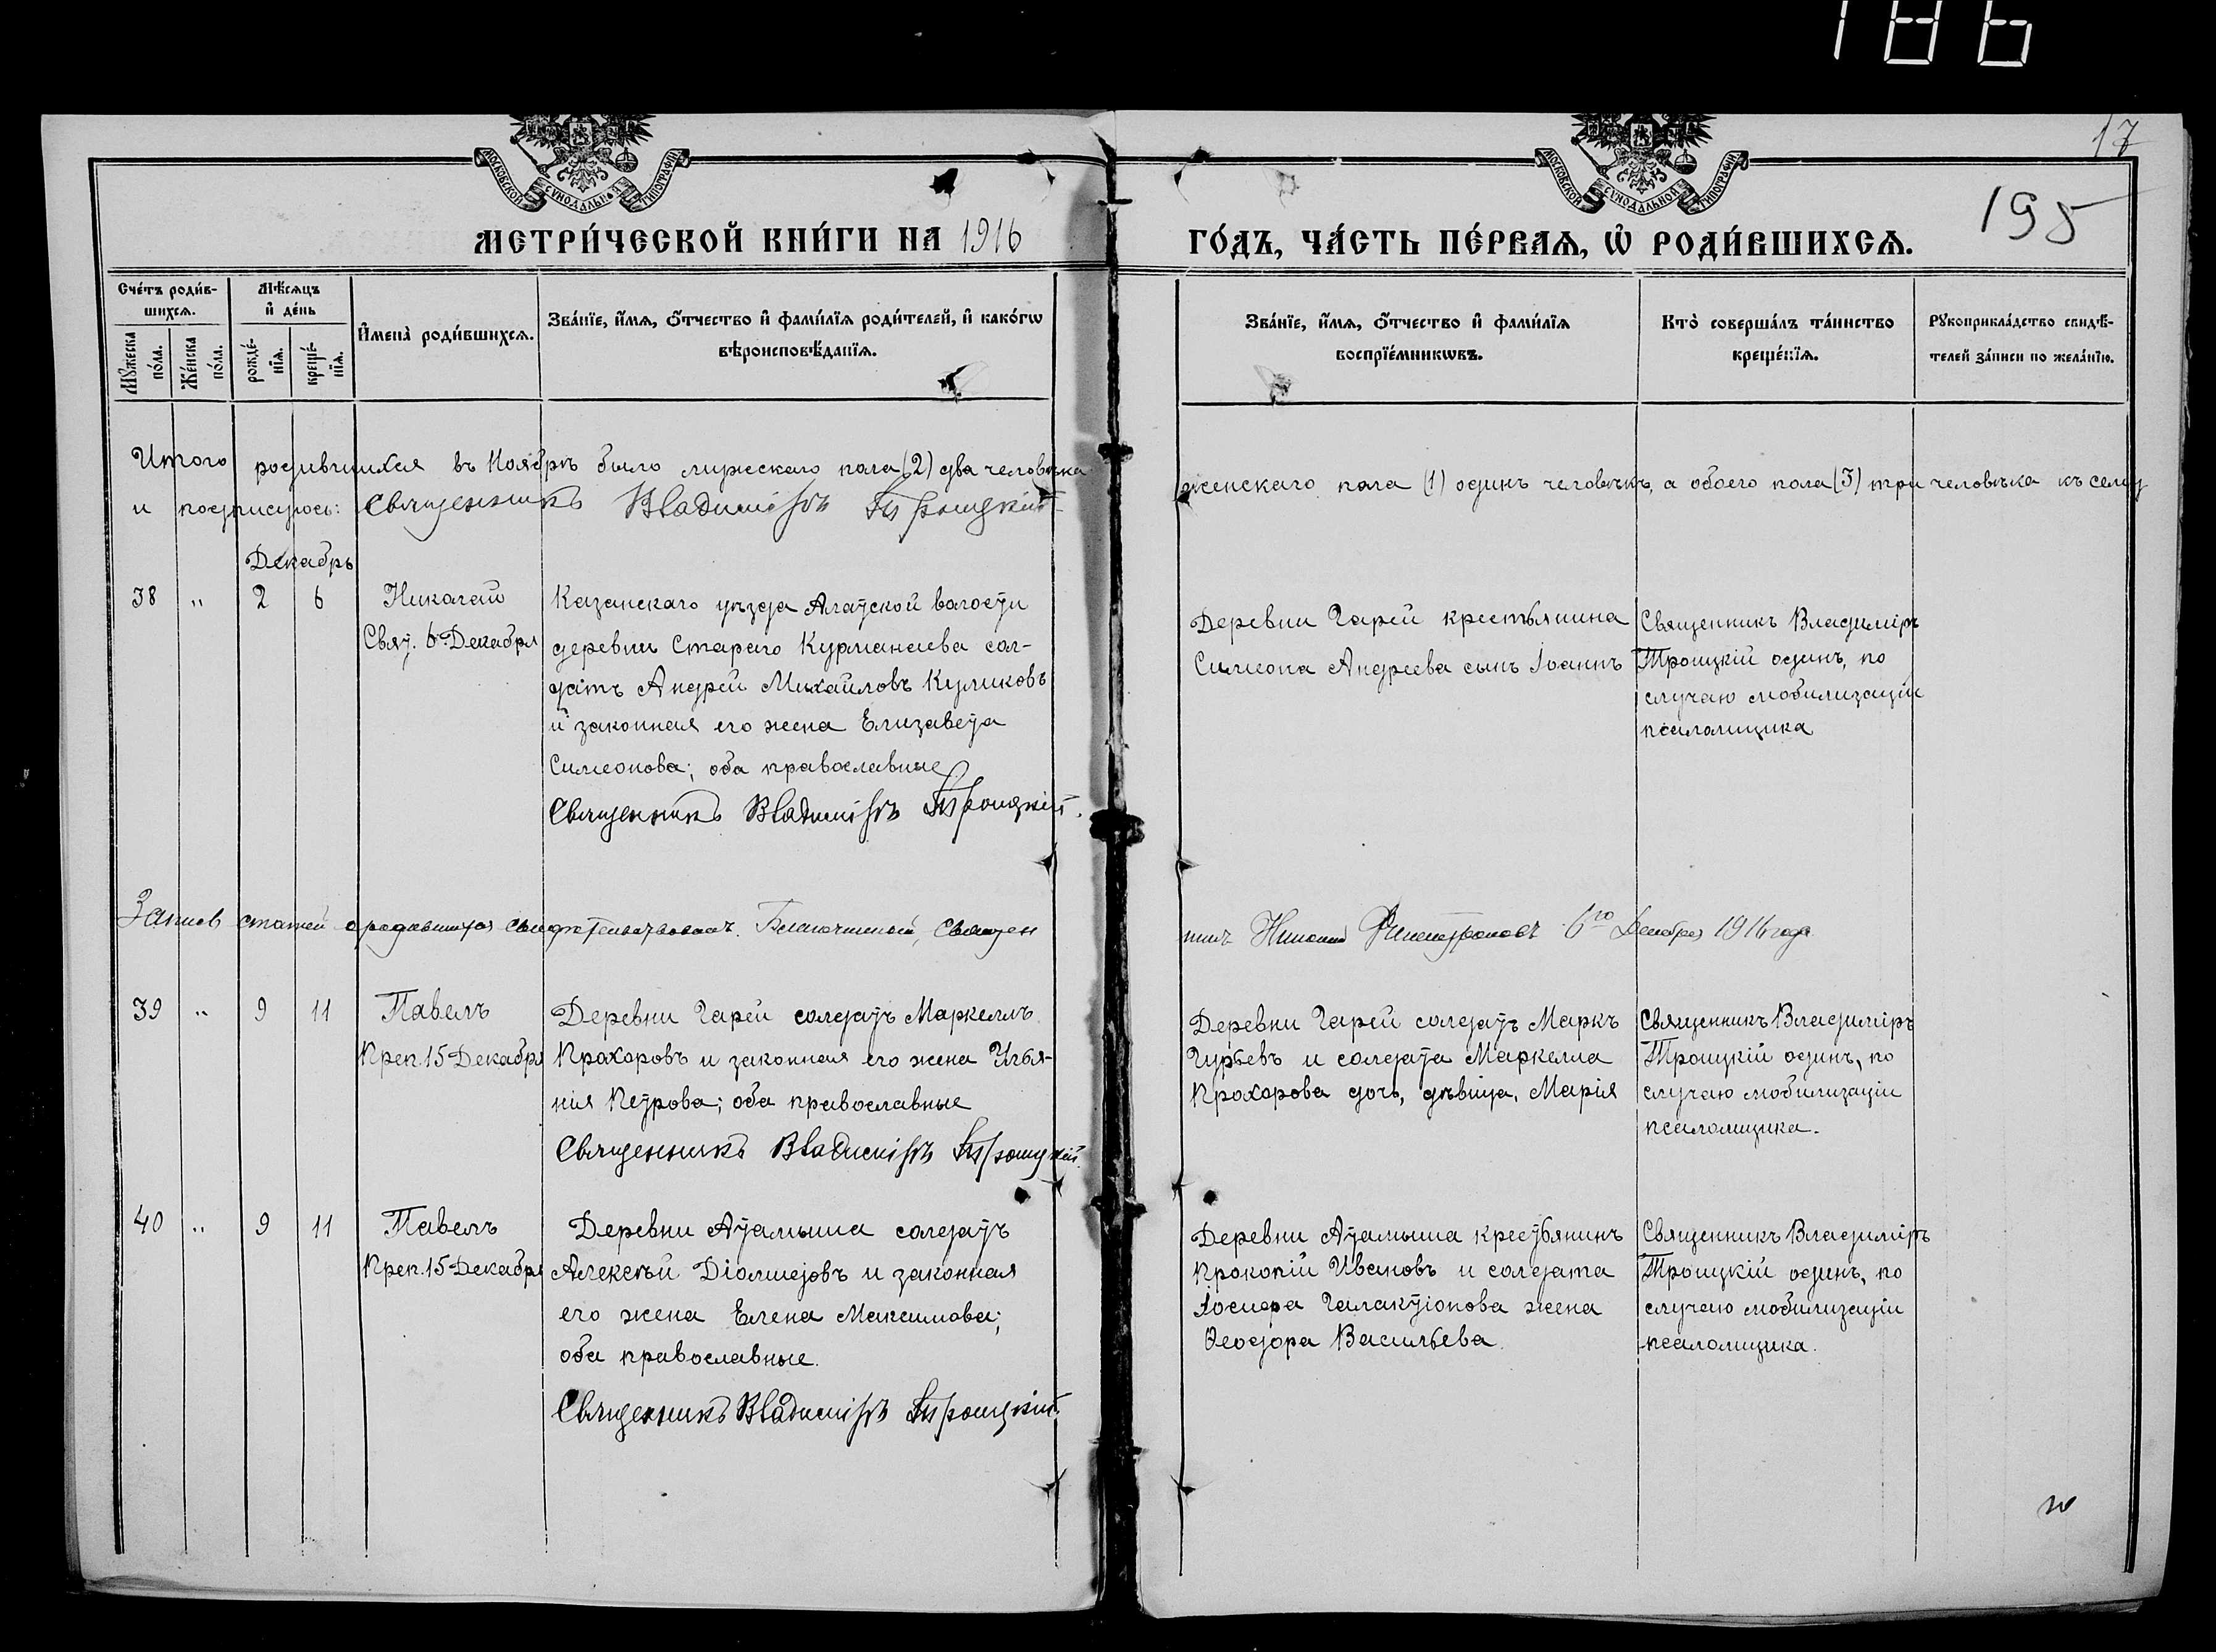 186
17
195
МОСКОВСКОЙ СУНОДАЛЬНОЙ ТИПОГРАФІИ
МОСКОВСКОЙ СУНОДАЛЬНОЙ ТИПОГРАФІИ
МЕТРИ́ЧЕСКОЙ КНИ́ГИ НА 1916
ГО́ДЪ, ЧА́СТЬ ПЕ́РВАѦ, Ѡ РОДИ́ВШИХСѦ.
Сче́тъ роди́в-
шихсѧ.
Мꙋжеска по́ла.
Же́нска по́ла.
Мѣ́сяцъ
и҆ де́нь
рожде́-
нїѧ.
креще́-
нїѧ.
И҆мена̀ роди́вшихсѧ.
Зва́нїе, и҆́мѧ, ѻ҆́тчество и҆ фами́лїѧ роди́телей, и҆ како́гѡ
вѣроисповѣ́данїѧ.
Зва́нїе, и҆́мѧ, ѻ҆́тчество и҆ фами́лїѧ
воспрїе́мникѡвъ.
Кто̀ соверша́лъ та́инство
креще́нїѧ.
Рꙋкоприкла́дство свидѣ́-
телей за́писи по жела́нїю.
Итого родившихся въ Ноябрѣ было мужескаго пола (2) два человѣка
женскаго пола (1) одинъ человѣкъ, а обоего пола (3) три человѣка къ сему
и подписуюсь: Священникъ Владиміръ Троицкій
Декабрь
38 " 2 6
Николай
Свят. 6 Декабря
Казанскаго уѣзда Алатской волости
деревни Стараго Курманаева сол-
датъ Андрей Михайловъ Куликовъ
и законная его жена Елизавета
Симеонова; оба православные
Священникъ Владиміръ Троицкій.
Деревни Гарей крестьянина
Симеона Андреева сынъ Іоаннъ
Священникъ Владиміръ
Троицкій одинъ, по
случаю мобилизаціи
псаломщика
Запись статей о родившихся свидѣтельствовалъ Благочинный, Священ
никъ Николай 6го Декабря 1916 года
39 " 9 11
Павелъ
Преп. 15 Декабря
Деревни Гарей солдатъ Маркеллъ
Прохоровъ и законная его жена Улья-
нія Петрова; оба православные
Священникъ Владиміръ Троицкій.
Деревни Гарей солдатъ Маркъ
Гурьевъ и солдата Маркелла
Прохорова дочь, дѣвица, Марія
Священникъ Владиміръ
Троицкій одинъ, по
случаю мобилизаціи
псаломщика.
40 " 9 11
Павелъ
Преп. 15 Декабря
Деревни Атамыша солдатъ
Алексѣй Діомидовъ и законная
его жена Елена Максимова;
оба православные.
Священникъ Владиміръ Троицкій
Деревни Атамыша крестьянинъ
Прокопій Ивановъ и солдата
Іосифа Галактіонова жена
Ѳеодора Васильева.
Священникъ Владиміръ
Троицкій одинъ, по
случаю мобилизаціи
псаломщика.